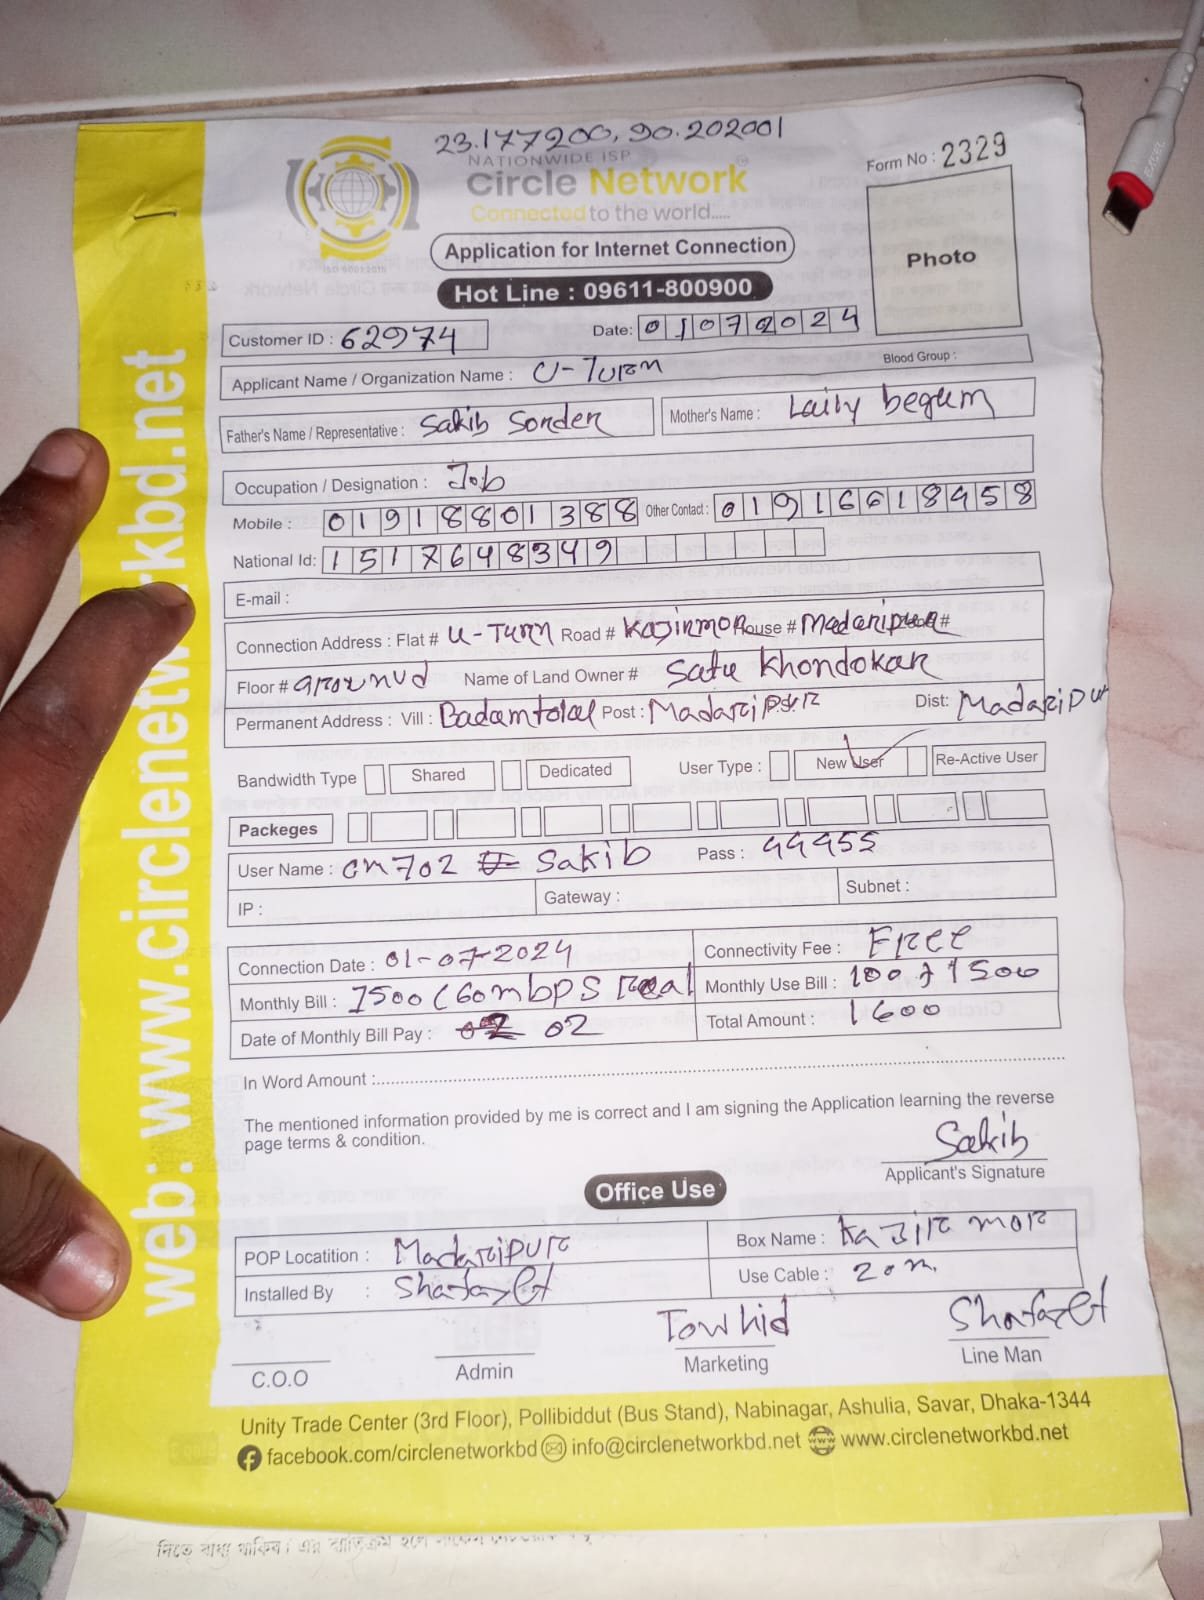 23.177200, 90.202001
NATIONWIDE ISP
Circle Network
Connected to the world.....
ISO 9001:2015
Form No : 2329
Photo
Application for Internet Connection
Hot Line : 09611-800900
Customer ID : 62974 Date: 01072024
Blood Group :
Applicant Name / Organization Name : U-Turn
Father's Name / Representative : Sakib Sonder Mother's Name : Laily begum
Occupation / Designation : Job
Mobile : 01918801388 Other Contact : 01916618458
National Id: 1517648349
E-mail :
Connection Address : Flat # U-Turn Road # Kazirmor House # Madaripur #
Floor # Grounud Name of Land Owner # Satu Khondokar
Permanent Address : Vill : Badamtolal Post : Madaripur Dist: Madaripur
Bandwidth Type Shared Dedicated User Type : New User Re-Active User
Packeges
User Name : cn702 Sakib Pass : 44455
IP : Gateway : Subnet :
Connection Date : 01-07-2024 Connectivity Fee : Free
Monthly Bill : 1500 (60mbps Real Monthly Use Bill : 100 + 1500
Date of Monthly Bill Pay : 02 Total Amount : 1600
In Word Amount :
The mentioned information provided by me is correct and I am signing the Application learning the reverse
page terms & condition.
Sakib
Applicant's Signature
Office Use
POP Locatition : Madaripur Box Name : Kazir mor
Installed By : Shafayet Use Cable : 20m.
Towhid Shafayet
C.O.O Admin Marketing Line Man
Unity Trade Center (3rd Floor), Pollibiddut (Bus Stand), Nabinagar, Ashulia, Savar, Dhaka-1344
facebook.com/circlenetworkbd info@circlenetworkbd.net www.circlenetworkbd.net
web: www.circlenetworkbd.net